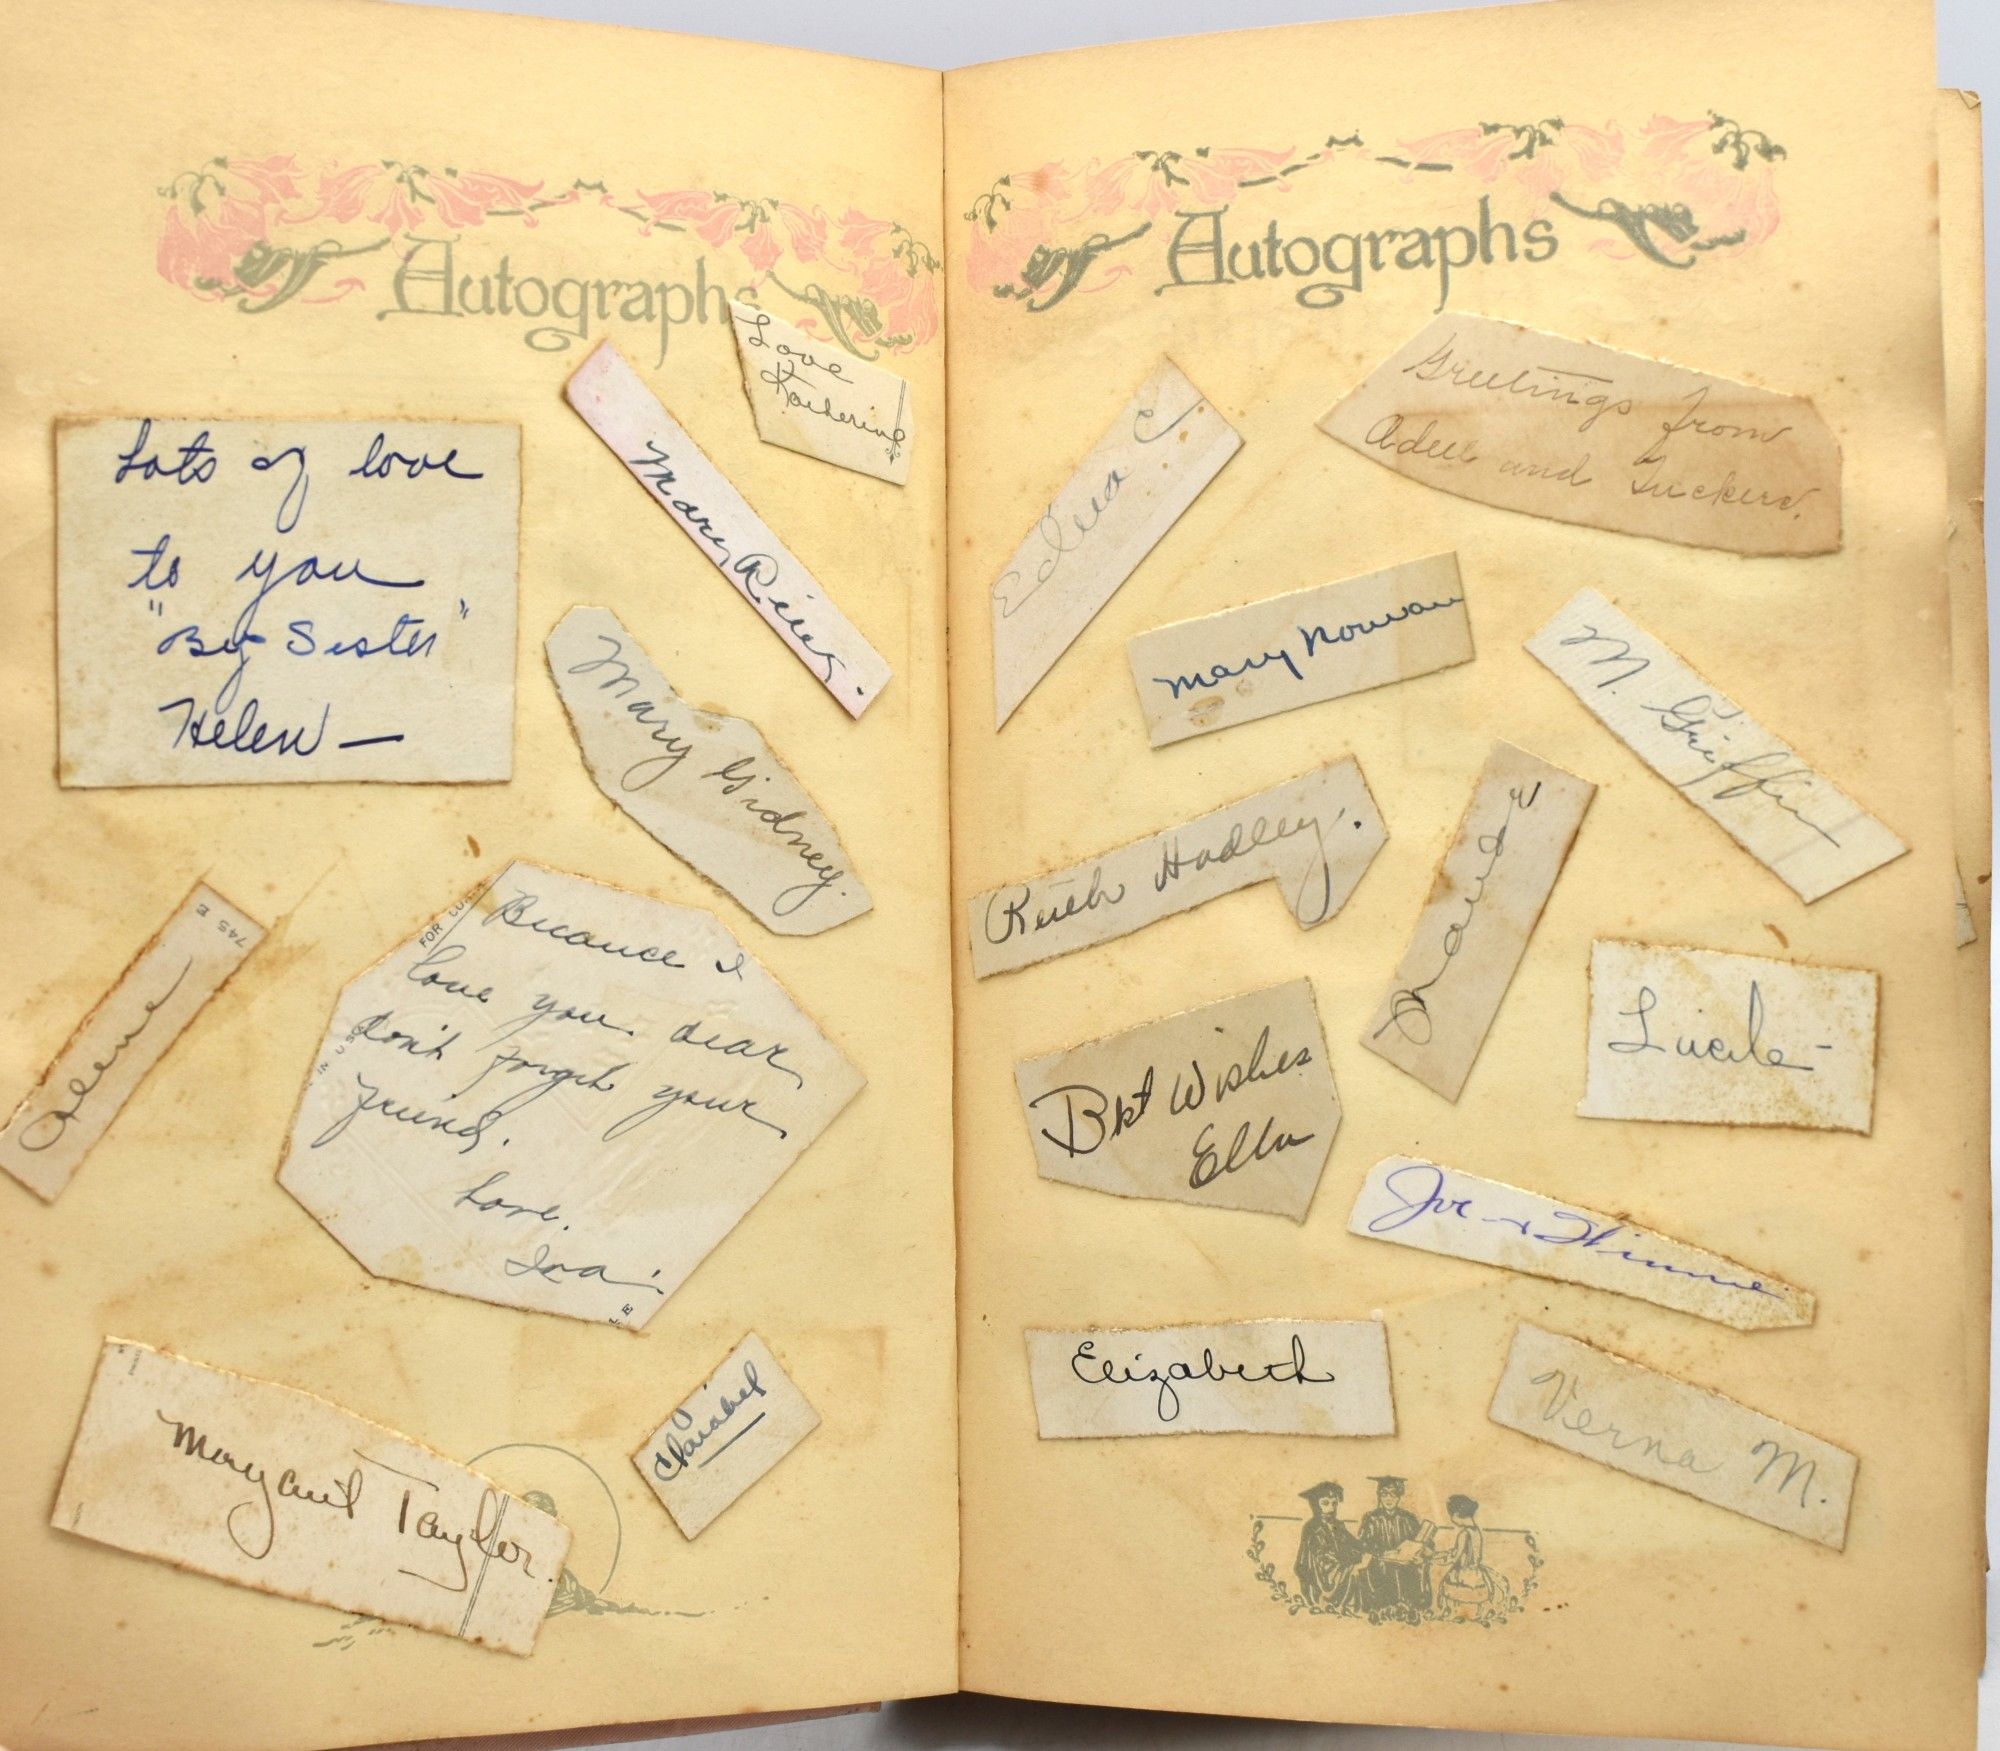 Autographs
Love
Katherine
Lots of love
to you
"Big Sister"
Helen —
Mary
Mary Gidney.
745 E
FOR
Because I
love you dear
don't forget your
friend.
Love.
Iva
IN US
Margaret Taylor.
Claribel
Autographs
Greetings from
and
Edna C
Mary
M. Griffin
Ruth Hadley.
Lucile -
Best Wishes
Ella
Joe +
Elizabeth
Verna M.